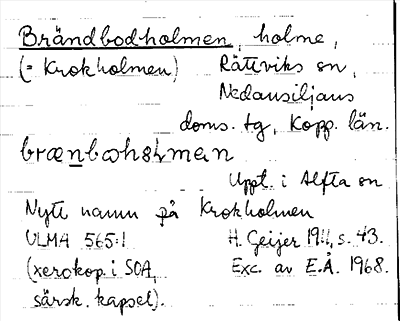 Brändbodholmen, holme,
(= Krokholmen) Rättviks sn,
Nedansiljans
doms. tg, Kopp. län.
brænbωhʚlmen
Uppt. i Alfta sn
Nytt namn på Krokholmen
ULMA 565:1 H. Geijer 1911, s. 43.
(xerokop. i SOA, Exc. av E.Å. 1968.
särsk. kapsel).